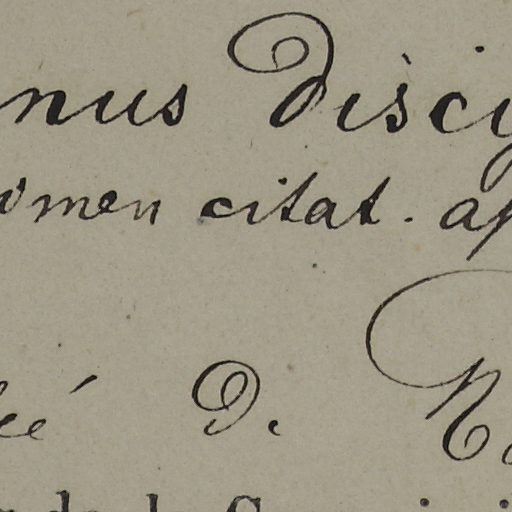 nus Disci
omen citat. ap
eé D. N